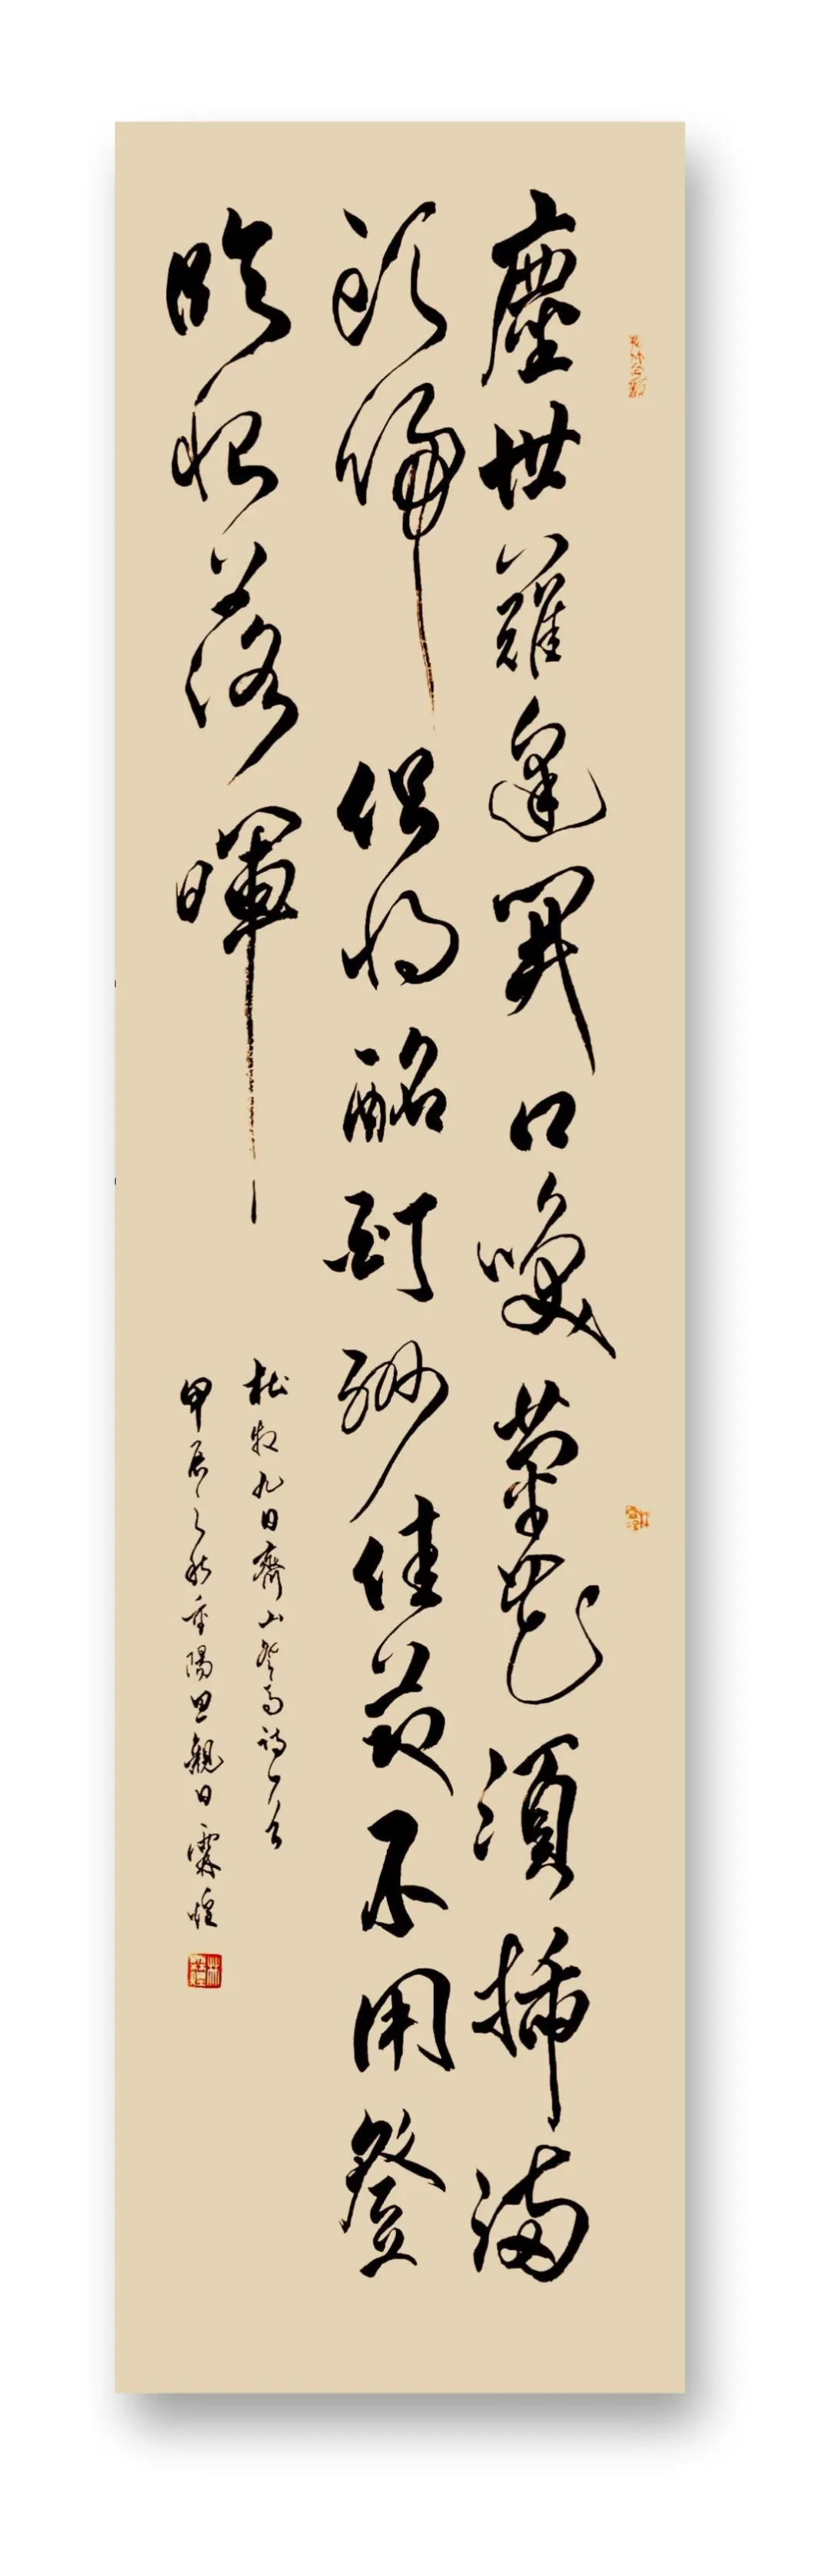 塵世難逢開口咲菊花須插滿
頭歸但將酩酊酬佳節不用登
臨恨落暉
杜牧九日齊山登高詩一首
甲辰之秋重陽思親日霖煌